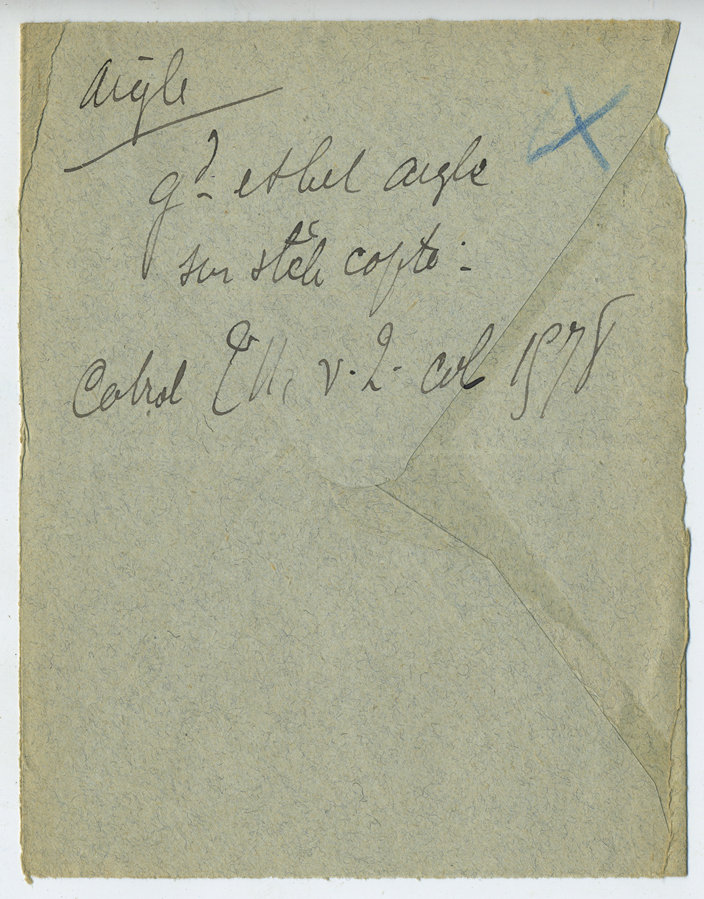 Aigle
gd. et bel aigle
sur stèle copte.
Cabrol v. 2. col 1578